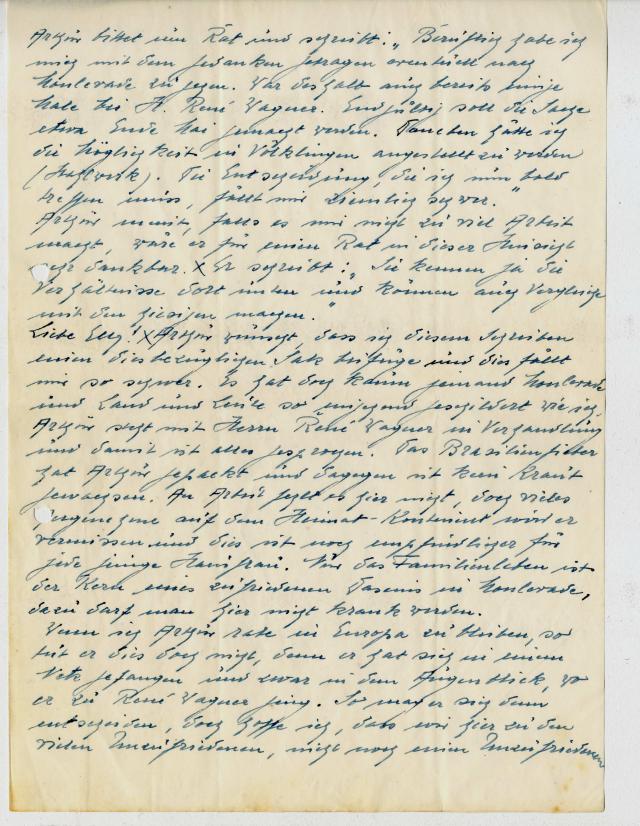 Arthur bittet um Rat und schreibt: „ Beruflich habe ich
mich mit dem Gedanken getragen eventuell nach
Monlevade zu gehen. War deshalb auch bereits einige
Male bei H. René Wagner. Endgültig soll die Sache
etwa Ende Mai gemacht werden. Daneben hätte ich
die Möglichkeit in Völklingen angestellt zu werden
(Stahlwerk). Die Entscheidung, die ich nun bald
treffen muss, fällt mir ziemlich schwer."
Arthur meint, falls es mir nicht zu viel Arbeit
macht, wäre er für einen Rat in dieser Hinsicht
sehr dankbar. X Er schreibt: „ Sie kennen ja die
Verhältnisse dort unten und können auch Vergleiche
mit den hiesigen machen."
Liebe Elly! X Arthur wünscht, dass ich diesem Schreiben
einen diesbezüglichen Satz beifüge und dies fällt
mir so schwer. Es hat doch kaum jemand Monlevade
und Land und Leute so eingehend geschildert wie ich.
Arthur steht mit Herrn René Wagner in Verhandlung
und damit ist alles gesprochen. Das Brasilienfieber
hat Arthur gepackt und dagegen ist kein Kraut
gewachsen. An Arbeit fehlt es hier nicht, doch vieles
Angenehme auf dem Heimat-Kontinent wird er
vermissen und dies ist noch empfindlicher für
jede junge Hausfrau. Nur das Familienleben ist
der Kern eines zufriedenen Daseins in Monlevade,
dazu darf man hier nicht krank werden.
Wenn ich Arthur rate in Europa zu bleiben, so
tut er dies doch nicht, denn er hat sich in einem
Netz gefangen und zwar in dem Augenblick, wo
er zu René Wagner ging. So mag er sich denn
entscheiden, doch hoffe ich, dass wir hier zu den
vielen Unzufriedenen, nicht noch einen Unzufriedenen